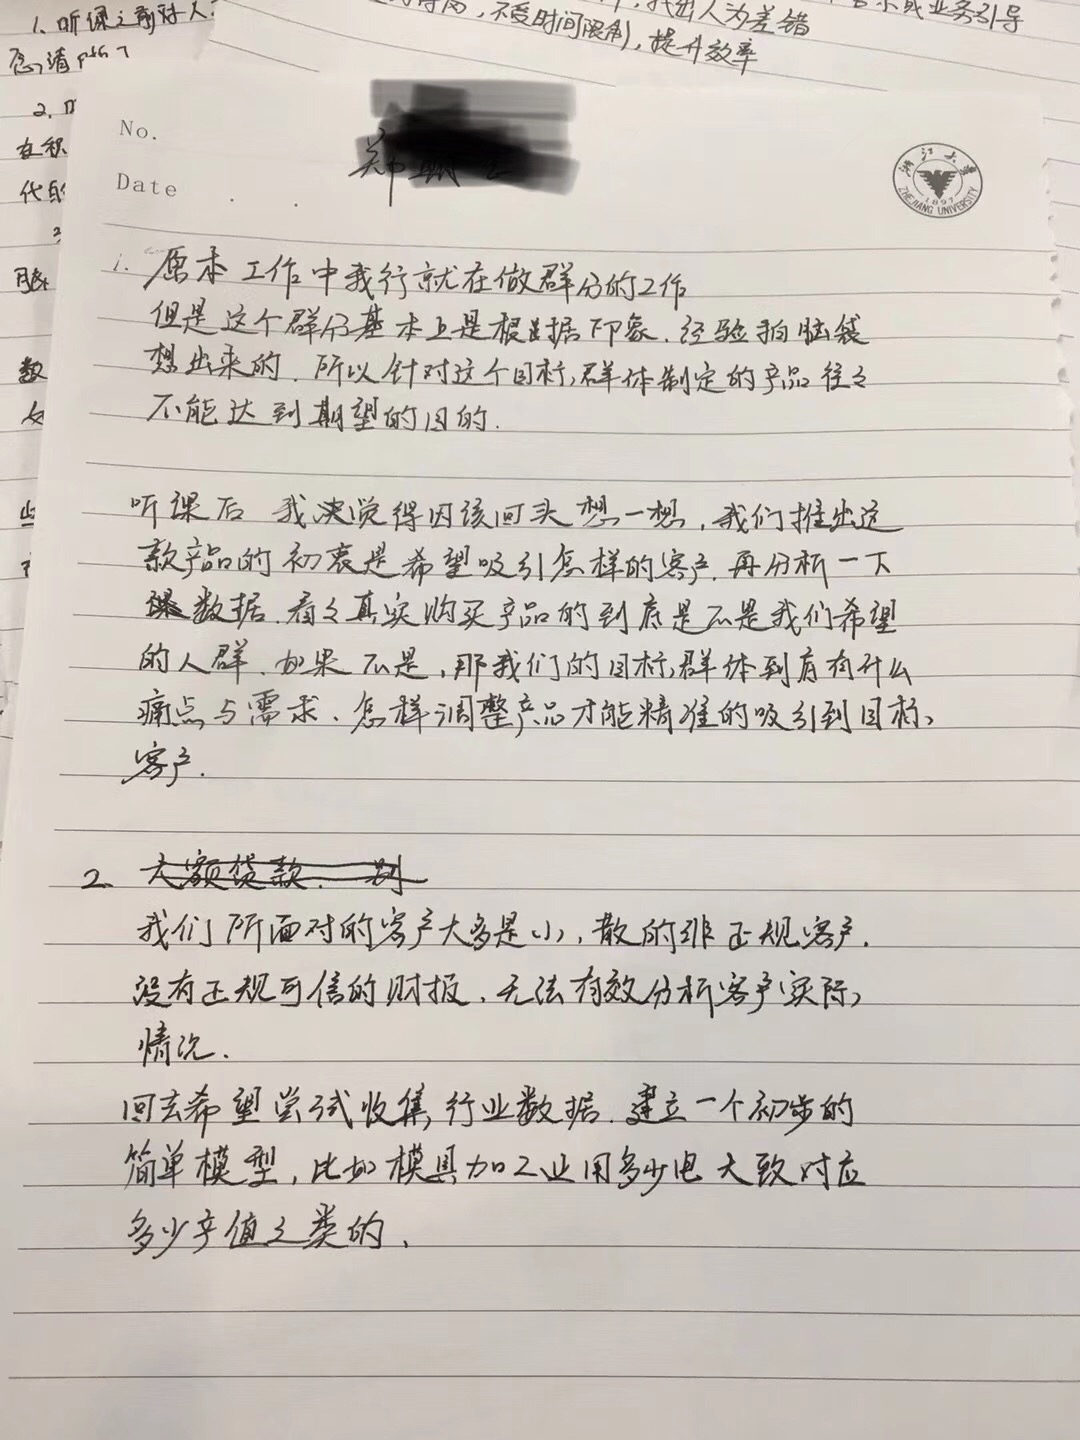 1、听课之前对人
不受时间限制,提升效率
找出人为差错
业务引导
2、
在积
代的
数
No.
Date
郑
浙江大学
1897
ZHEJIANG UNIVERSITY
1. 原本工作中我行就在做群分的工作
但是这个群分基本上是根据印象、经验拍脑袋
想出来的、所以针对这个目标群体制定的产品往々
不能达到期望的目的.
听课后 我决觉得因该回头想一想,我们推出这
款产品的初衷是希望吸引怎样的客户.再分析一下
数据.看々真实购买产品的到底是不是我们希望
的人群.如果不是,那我们的目标群体到底有什么
痛点与需求、怎样调整产品才能精准的吸引到目标
客户.
2. 大额贷款、别
我们所面对的客户大多是小,散的非正规客户.
没有正规可信的财报、无法有效分析客户实际
情况.
回去希望尝试收集行业数据.建立一个初步的
简单模型,比如模具加工业用多少电大致对应
多少产值之类的、